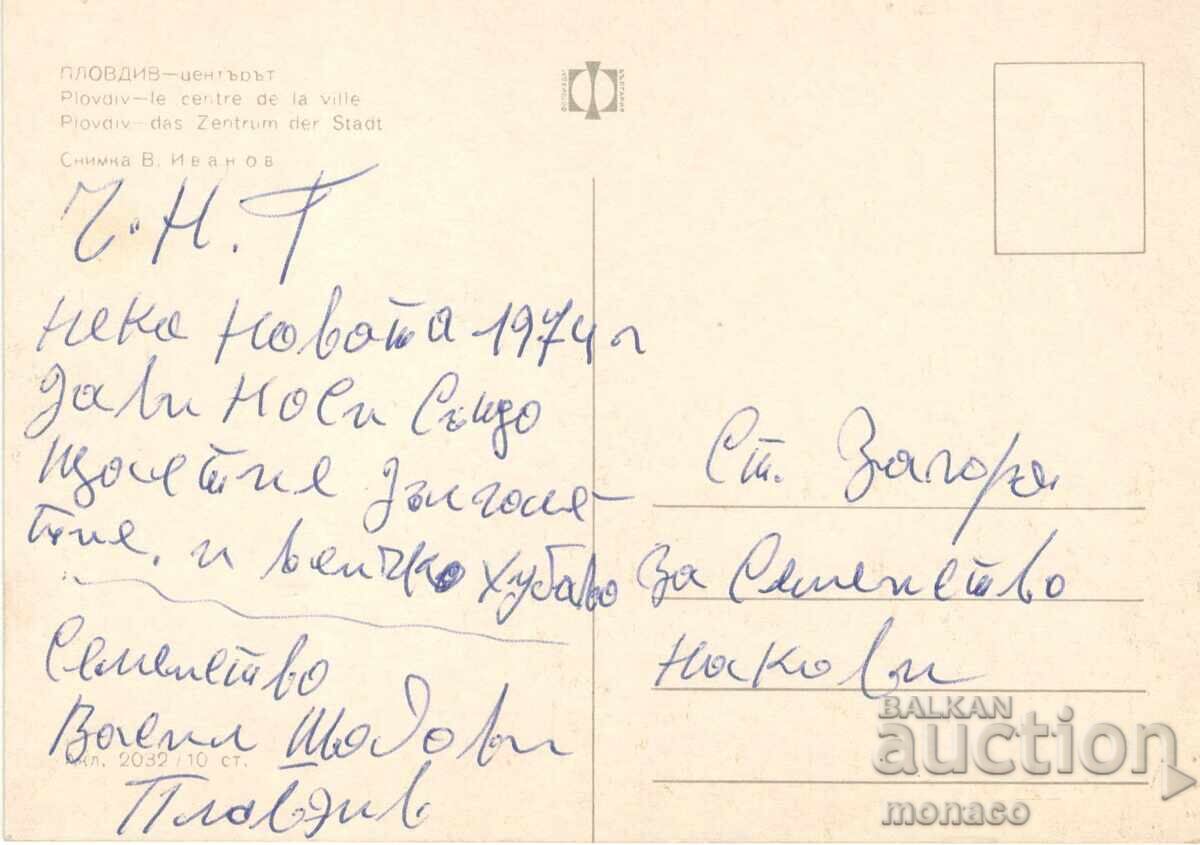 ПЛОВДИВ—центърът
Plovdiv—le centre de la ville
Plovdiv—das Zentrum der Stadt
Снимка В. Иванов
ФОТОИЗДАТ
БЪЛГАРИЯ
Ч. Н. Г
Нека Новата 1974 г
Да ви носи
Щастие Дълголе-
тие. и всичко хубаво
Семейство
Васил
Пловдив
Акл. 2032/10 ст.
Ст. Загора
За Семейство
Накови
BALKAN
auction
monaco